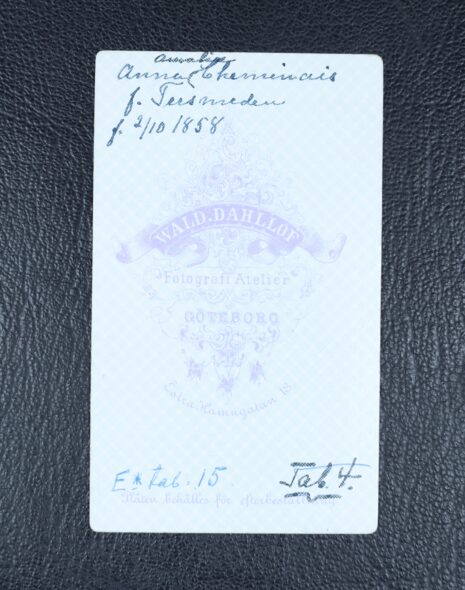 Amalia
Anna Cheminais
f. Tersmeden
f. 2/10 1858
WALD. DAHLLÖF
Fotografi Atelier
GÖTEBORG
Östra Hamngatan 18.
E* tab. 15. Tab. 4.
Plåten behålles för efterbeställning.